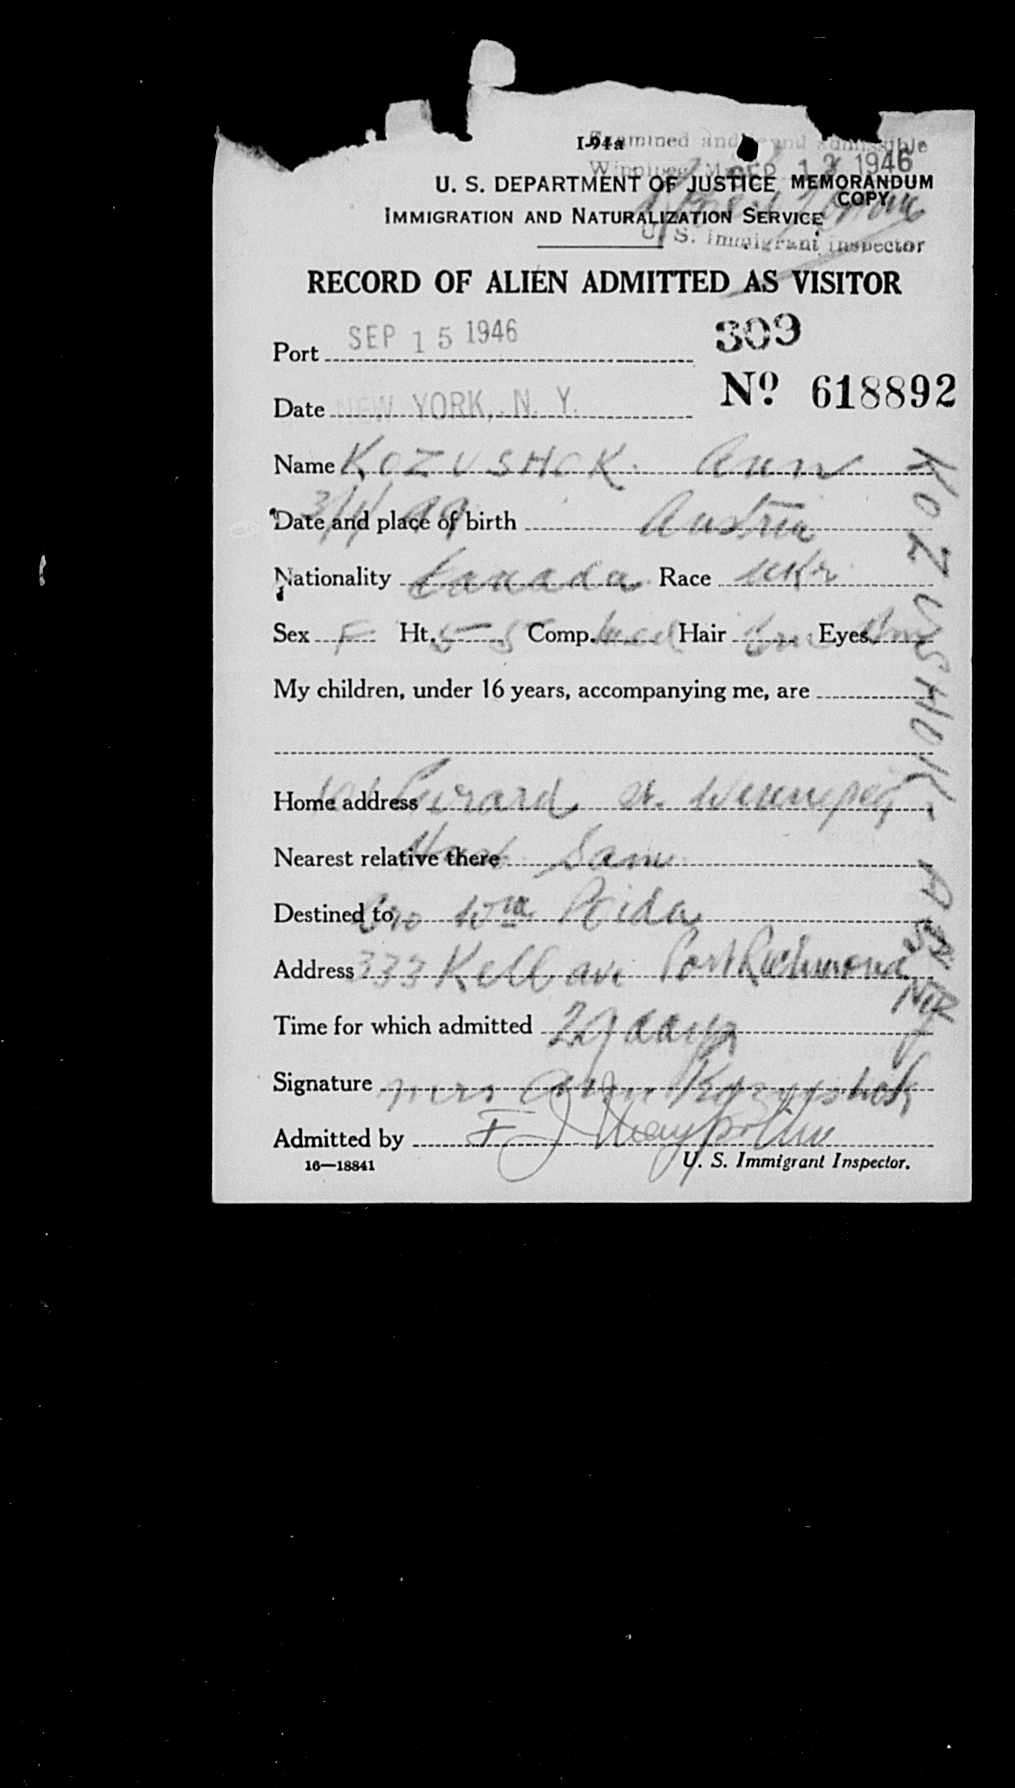 I-94a
Examined and found admissible
Winnipeg, M SEP 13 1946
U. S. DEPARTMENT OF JUSTICE MEMORANDUM
COPY
IMMIGRATION AND NATURALIZATION SERVICE
U. S. Immigrant Inspector
RECORD OF ALIEN ADMITTED AS VISITOR
Port SEP 15 1946 309
Date NEW YORK, N. Y. No. 618892
Name KOZUSHOK Ann
Date and place of birth 3/1/99 Austria
Nationality Canada Race Ukr
Sex F Ht. 5-5 Comp. Med Hair Brn Eyes Brn
My children, under 16 years, accompanying me, are
Home address Girard St. Winnipeg
Nearest relative there Husb Sam
Destined to Bro Wm Prida
Address 333 Kell ave Port Richmond
Time for which admitted 29 days
Signature Mrs Ann Kozushok
Admitted by F J
16—18841 U. S. Immigrant Inspector.
KOZUSHOK, A